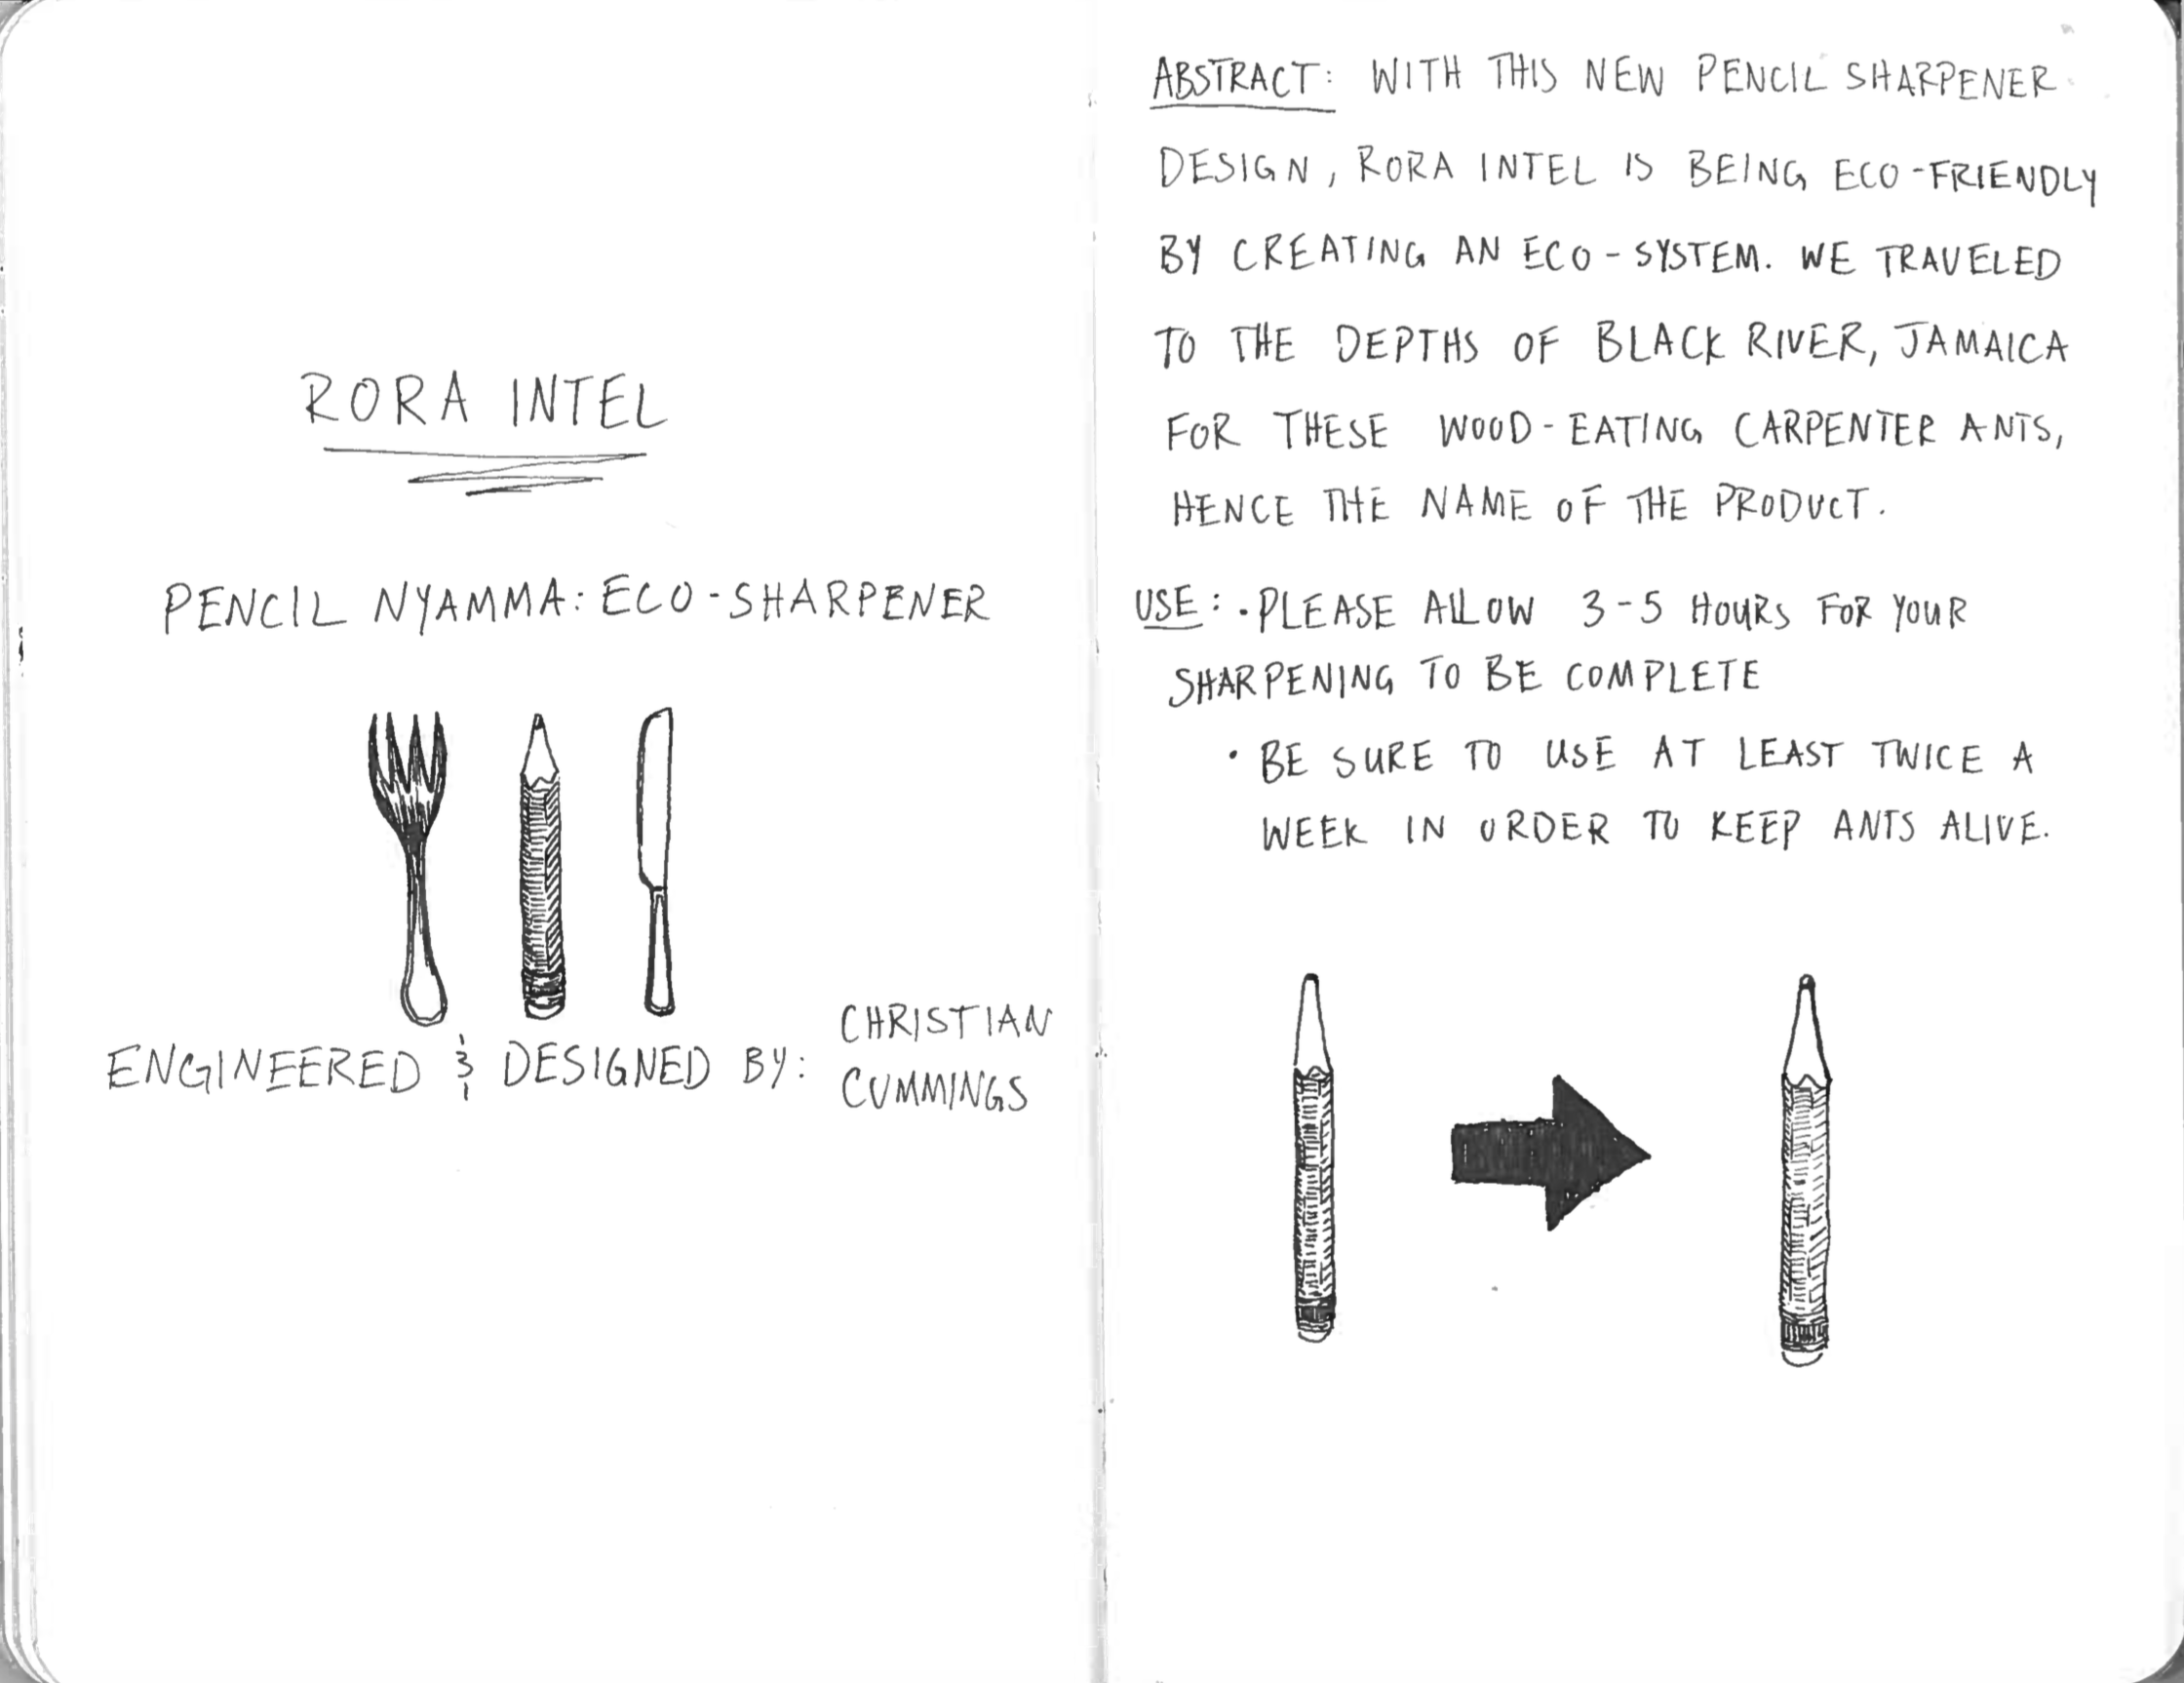 RORA INTEL
PENCIL NYAMMA: ECO-SHARPENER
ENGINEERED & DESIGNED BY: CHRISTIAN
CUMMINGS
ABSTRACT: WITH THIS NEW PENCIL SHARPENER
DESIGN, RORA INTEL IS BEING ECO-FRIENDLY
BY CREATING AN ECO-SYSTEM. WE TRAVELED
TO THE DEPTHS OF BLACK RIVER, JAMAICA
FOR THESE WOOD-EATING CARPENTER ANTS,
HENCE THE NAME OF THE PRODUCT.
USE: • PLEASE ALLOW 3-5 HOURS FOR YOUR
SHARPENING TO BE COMPLETE
• BE SURE TO USE AT LEAST TWICE A
WEEK IN ORDER TO KEEP ANTS ALIVE.